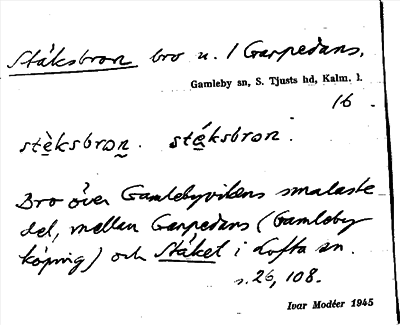 Stäksbron bro n. 1 Garpedans.
Gamleby sn, S. Tjusts hd, Kalm. l.
16.
stèksbron. stéksbron.
Bro över Gamlebyvikens smalaste
del, mellan Garpedans (Gamleby
köping) och Stäket i Lofta sn.
s. 26, 108.
Ivar Modéer 1945